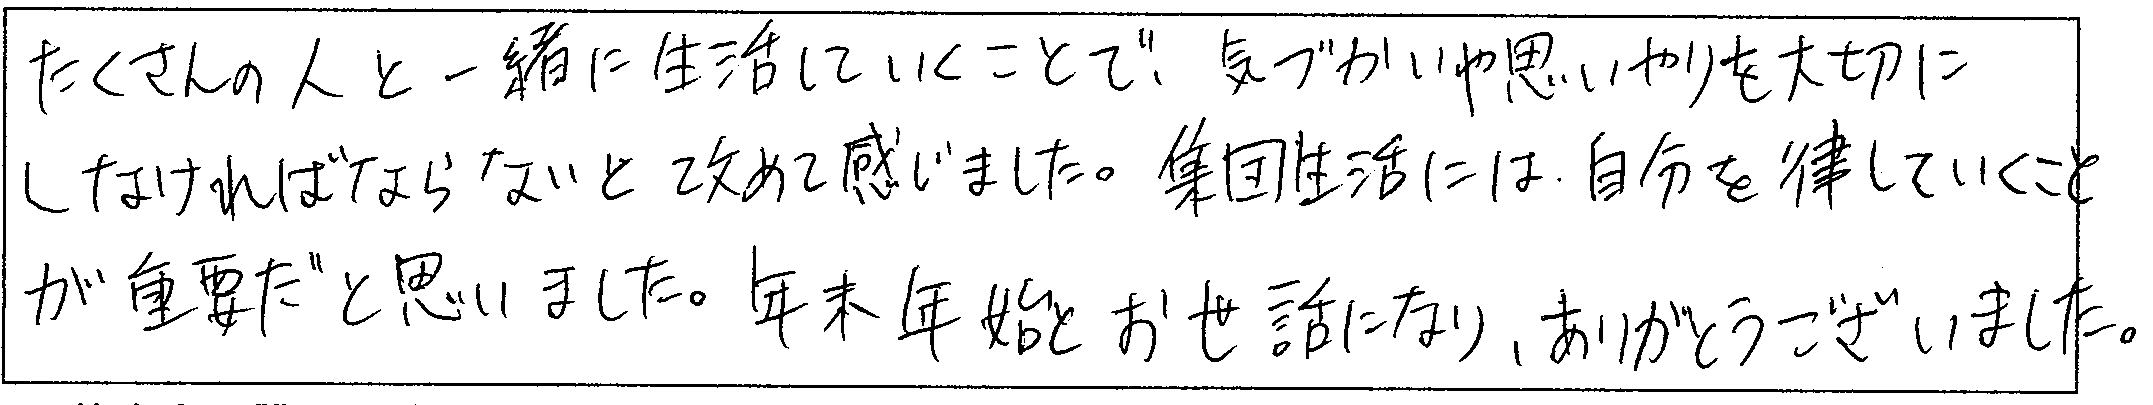 たくさんの人と一緒に生活していくことで、気づかいや思いやりを大切に
しなければならないと改めて感じました。集団生活には、自分を律していくこと
が重要だと思いました。年末年始とお世話になり、ありがとうございました。